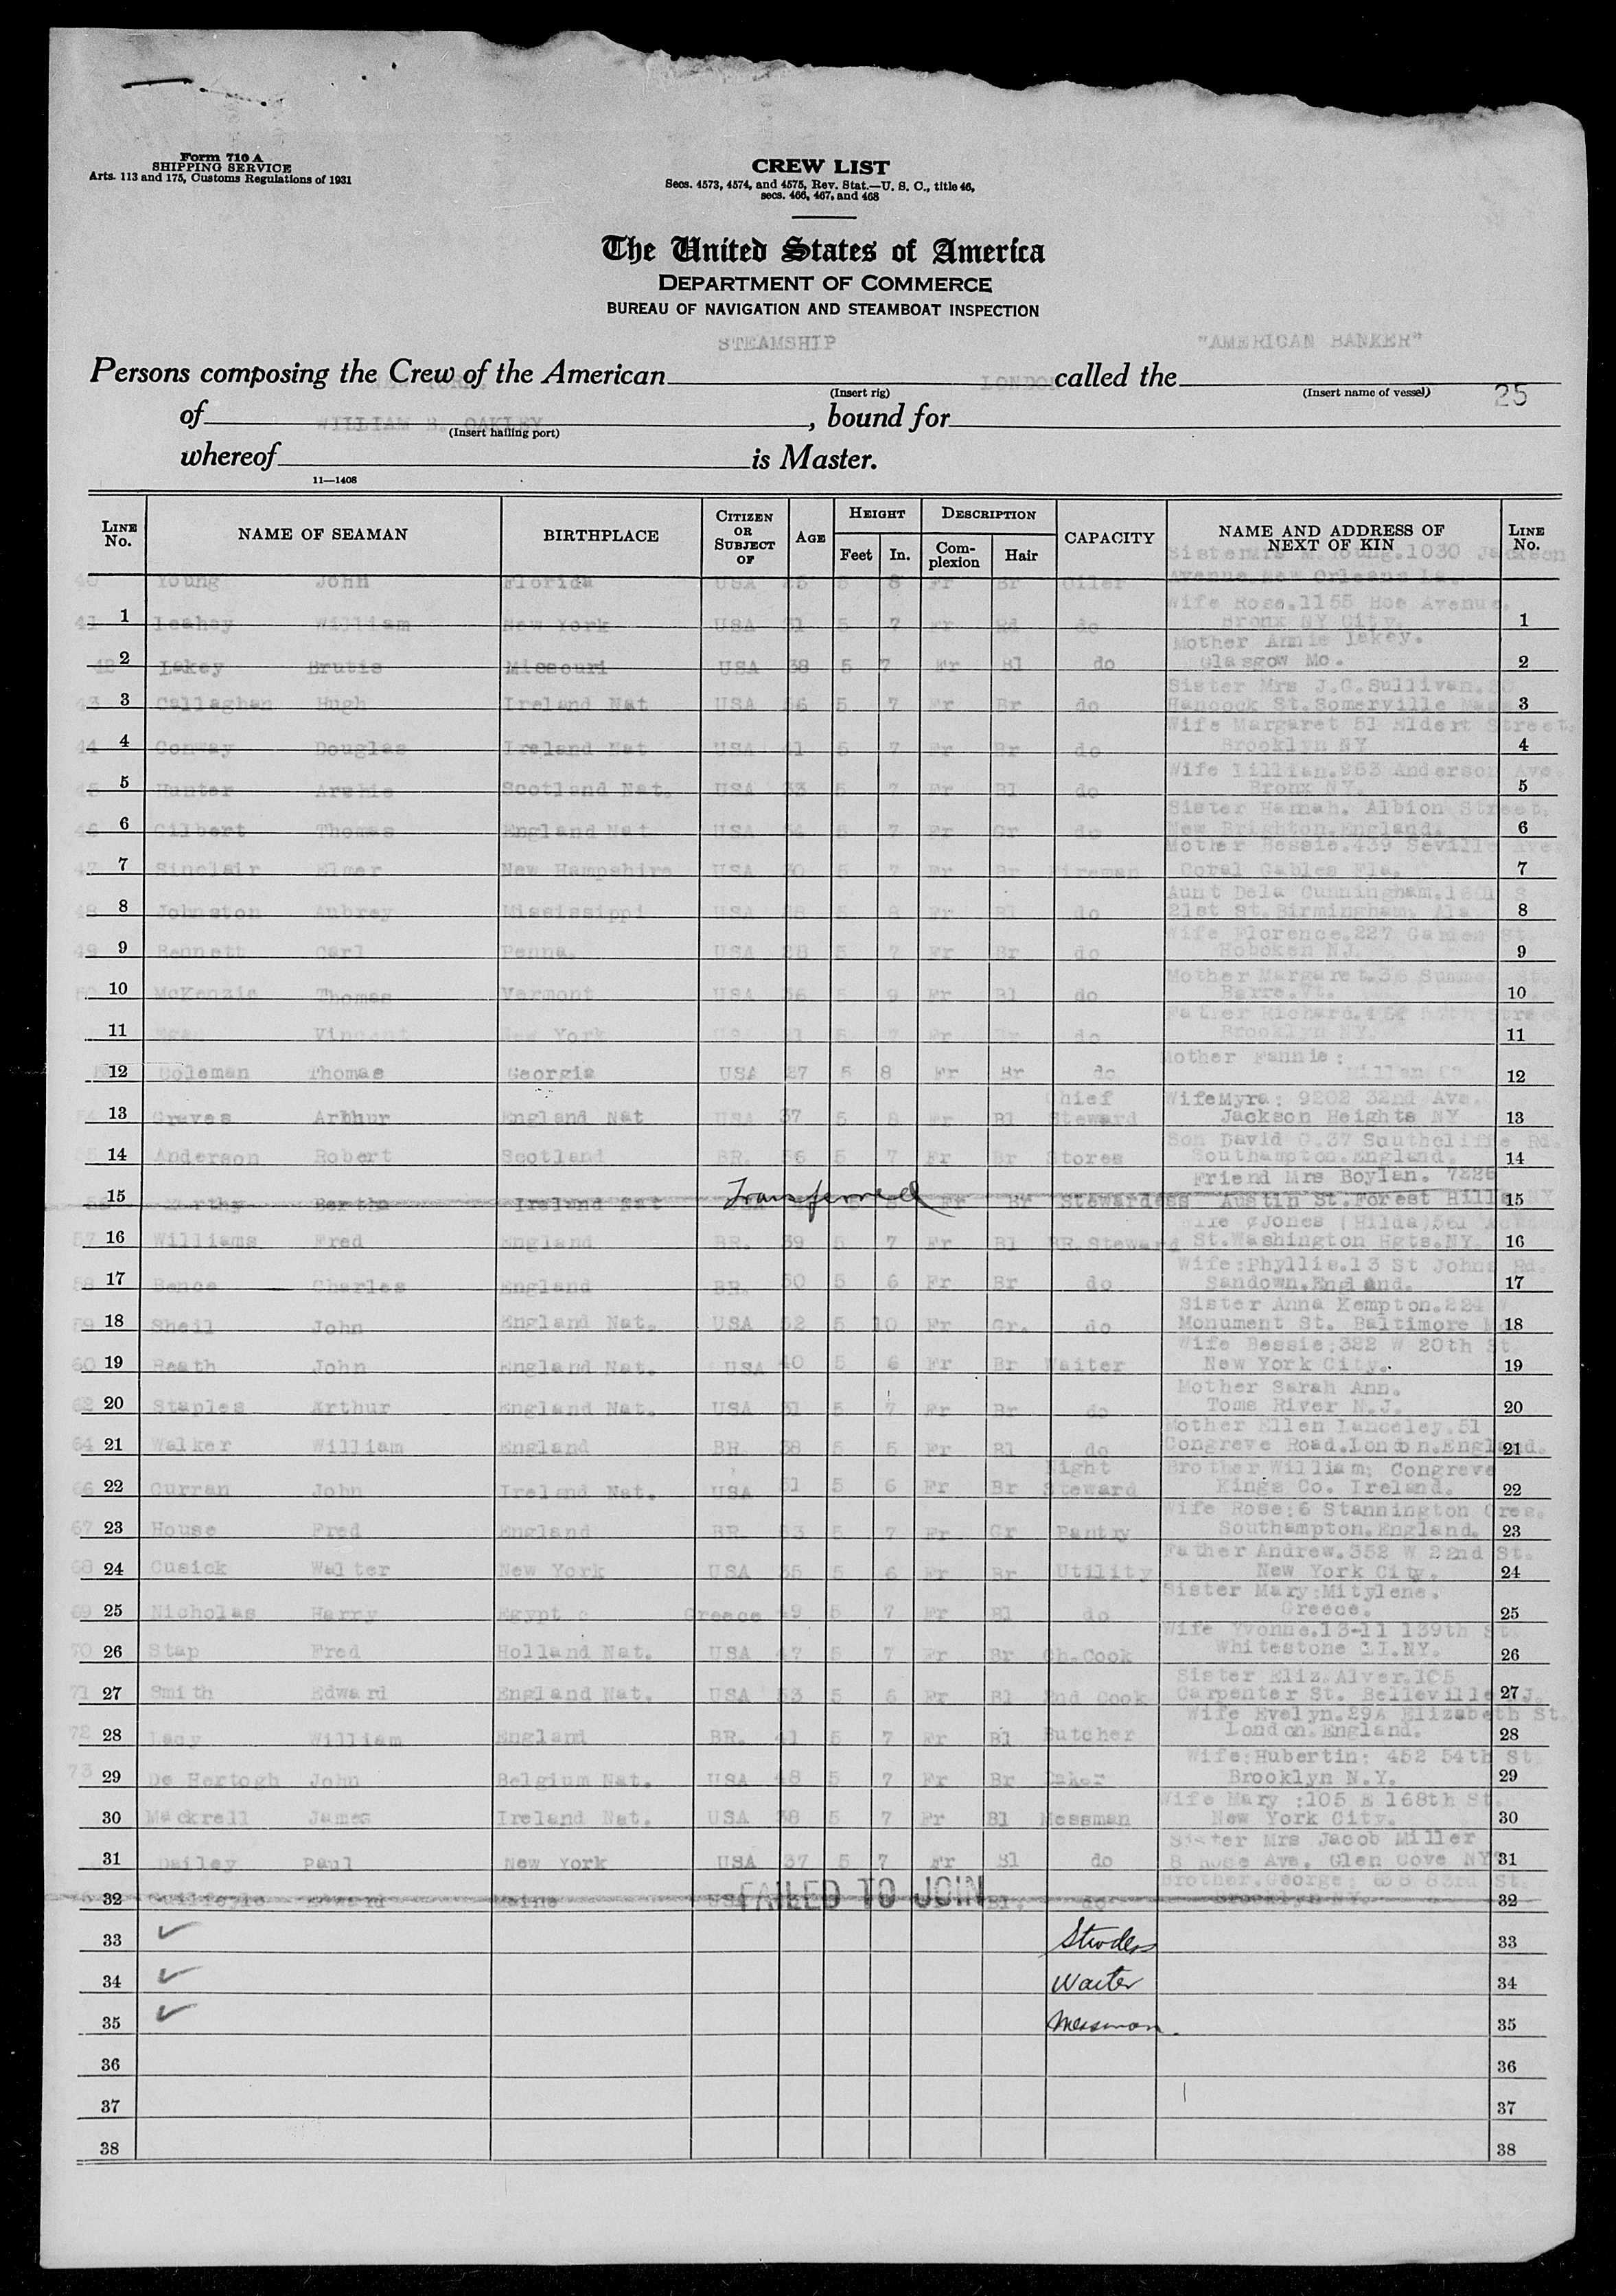 Form 710 A
SHIPPING SERVICE
Arts. 113 and 175, Customs Regulations of 1931
CREW LIST
Secs. 4573, 4574, and 4575, Rev. Stat.—U. S. C., title 46,
secs. 466, 467, and 468
The United States of America
DEPARTMENT OF COMMERCE
BUREAU OF NAVIGATION AND STEAMBOAT INSPECTION
STEAMSHIP "AMERICAN BANKER"
Persons composing the Crew of the American called the
(Insert rig) LONDON (Insert name of vessel) 25
of , bound for
WILLIAM B. OAKLEY (Insert hailing port)
whereof is Master.
11—1408
LINE No. NAME OF SEAMAN BIRTHPLACE CITIZEN OR SUBJECT OF AGE HEIGHT Feet In. DESCRIPTION Complexion Hair CAPACITY NAME AND ADDRESS OF NEXT OF KIN LINE No.
Sister Mrs M. Young. 1030 Jackson
40 Young John Florida USA 5 8 Fr Br Oiler Avenue New Orleans La.
Wife Rose. 1155 Hoe Avenue.
41 1 Leahey William New York USA 31 5 7 Fr Rd do Bronx NY City. 1
Mother Annie Lakey.
2 Lakey Brutis Missouri USA 38 5 7 Fr Bl do Glasgow Mo. 2
Sister Mrs J.G. Sullivan.
43 3 Callaghan Hugh Ireland Nat USA 5 7 Fr Br do Hancock St. Somerville Mass 3
Wife Margaret 51 Eldert Street.
44 4 Conway Douglas Ireland Nat USA 41 5 7 Fr Br do Brooklyn NY 4
Wife Lillian. 963 Anderson Ave.
45 5 Hunter Archie Scotland Nat. USA 33 5 7 Fr Bl do Bronx NY. 5
Sister Hannah. Albion Street.
46 6 Gilbert Thomas England Nat USA 5 7 Fr Gr do New Brighton. England. 6
Mother Bessie. 439 Seville Ave.
47 7 Sinclair Elmer New Hampshire USA 30 5 7 Fr Br Fireman Coral Gables Fla. 7
Aunt Dela Cunningham. S
48 8 Johnston Aubrey Mississippi USA 5 8 Fr Bl do 21st St. Birmingham. Ala 8
Wife Florence. 227 Garden St.
49 9 Bennett Carl Penna. USA 28 5 7 Fr Br do Hoboken NJ. 9
Mother Margaret. 36 Summer St.
10 McKenzie Thomas Vermont USA 36 5 9 Fr Bl do Barre. Vt. 10
Father Richard. Street.
11 Egan Vincent New York USA 5 7 Fr Br do Brooklyn NY. 11
Mother Fannie:
12 Coleman Thomas Georgia USA 27 5 8 Fr Br do Millen Ga 12
Chief Wife Myra: 9202 32nd Ave.
13 Graves Arthur England Nat USA 37 5 8 Fr Bl Steward Jackson Heights NY 13
Son David G. 37 Southcliffe Rd.
14 Anderson Robert Scotland BR. 56 5 7 Fr Br Stores Southampton. England. 14
Friend Mrs Boylan. 7226
15 Bertha Ireland Nat USA Transferred Fr Br Stewardess Austin St. Forest Hills NY 15
Jones (Hilda) 561
57 16 Williams Fred England BR. 39 5 7 Fr Bl BR. Steward St. Washington Hgts. NY. 16
Wife: Phyllis. 13 St Johns Rd.
58 17 Bence Charles England BR. 30 5 6 Fr Br do Sandown. England. 17
Sister Anna Kempton. 224 W
59 18 Sheil John England Nat. USA 52 5 10 Fr Gr. do Monument St. Baltimore 18
Wife Bessie: 322 W 20th St.
60 19 Heath John England Nat. USA 40 5 6 Fr Br Waiter New York City. 19
Mother Sarah Ann.
62 20 Staples Arthur England Nat. USA 31 5 7 Fr Br do Toms River N.J. 20
Mother Ellen Lanceley. 51
64 21 Walker William England BR. 38 5 5 Fr Bl do Congreve Road. London. England. 21
Night Brother William; Congreve
66 22 Curran John Ireland Nat. USA 51 5 6 Fr Br Steward Kings Co. Ireland. 22
Wife Rose: 6 Stannington Cres.
67 23 House Fred England BR. 5 7 Fr Gr Pantry Southampton. England. 23
Father Andrew. 352 W 22nd St.
68 24 Cusick Walter New York USA 35 5 6 Fr Br Utility New York City. 24
Sister Mary: Mitylene.
69 25 Nicholas Harry Egypt Greece 49 5 7 Fr Bl do Greece. 25
Wife Yvonne. 13-11 139th St.
70 26 Stap Fred Holland Nat. USA 47 5 7 Fr Br Ch. Cook Whitestone LI. NY. 26
Sister Eliz. Alver. 105
71 27 Smith Edward England Nat. USA 53 5 6 Fr Bl 2nd Cook Carpenter St. Belleville NJ. 27
Wife Evelyn. 29A Elizabeth St.
72 28 Lacy William England BR. 41 5 7 Fr Bl Butcher London. England. 28
Wife: Hubertin: 452 54th St.
73 29 De Hertogh John Belgium Nat. USA 48 5 7 Fr Br Baker Brooklyn N.Y. 29
Wife Mary : 105 E 168th St.
30 Mackrell James Ireland Nat. USA 38 5 7 Fr Bl Messman New York City. 30
Sister Mrs Jacob Miller
31 Dailey Paul New York USA 37 5 7 Fr Bl do 8 Rose Ave. Glen Cove NY 31
Brother. George: 83rd St.
32 Edward Maine USA FAILED TO JOIN Bl. do Brooklyn NY. 32
33 ✓ Stwdess 33
34 ✓ Waiter 34
35 ✓ Messman. 35
36 36
37 37
38 38